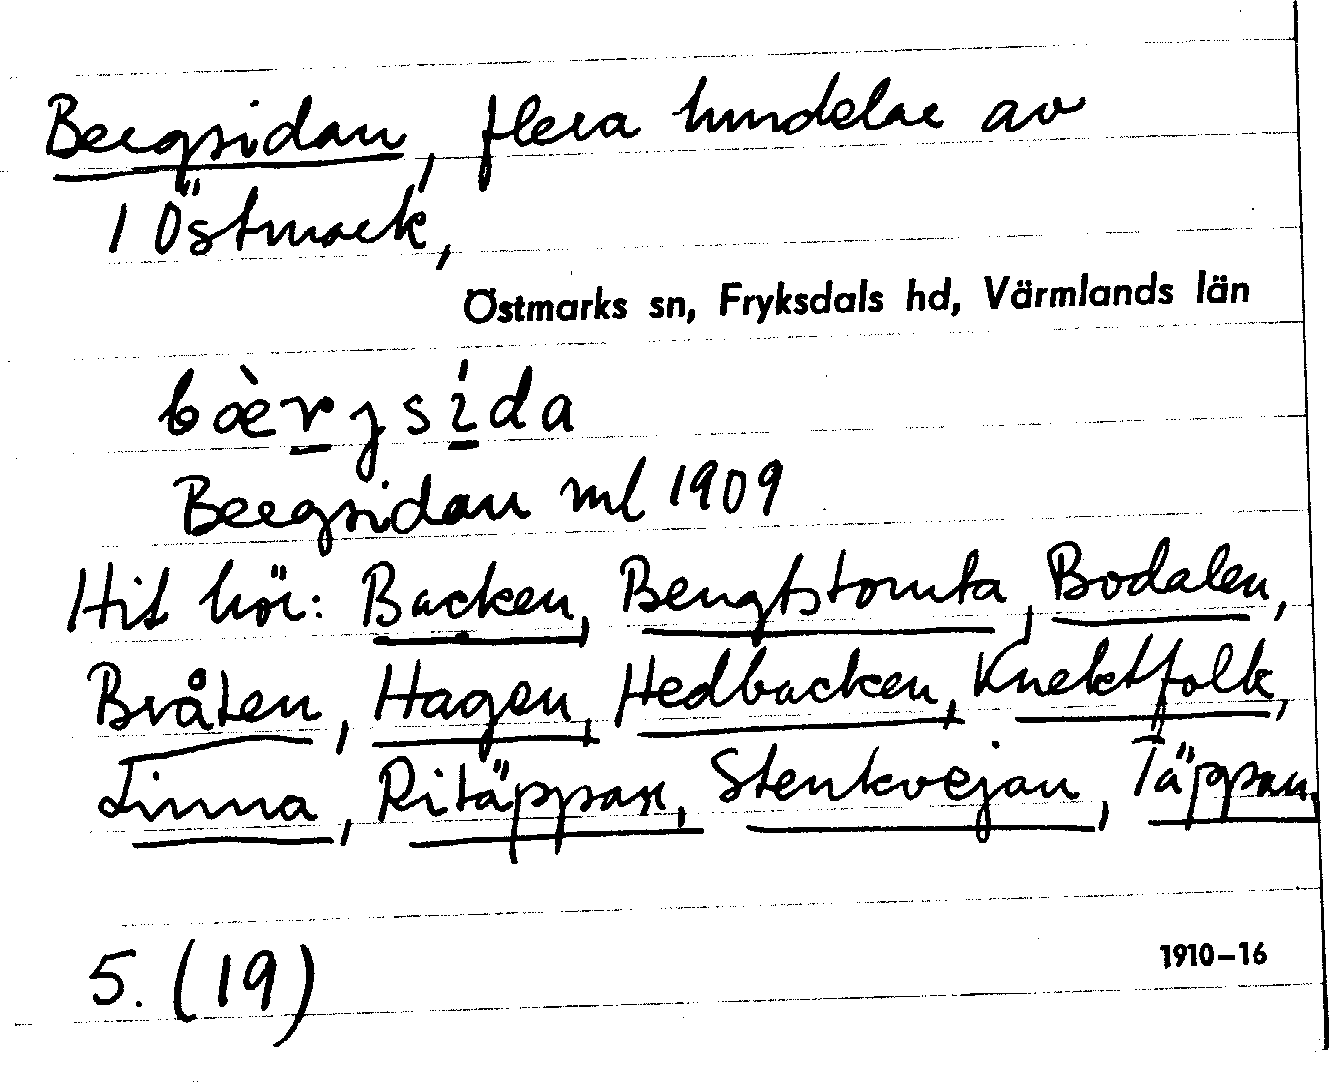 Bergsidan, flera hmdelar av
1 Östmark,
Östmarks sn, Fryksdals hd, Värmlands län
bæ̀rjsída
Bergsidan ml 1909
Hit hör: Backen, Bengtstomta, Bodalen,
Bråten, Hagen, Hedbacken, Knektfolk,
Linna, Ritäppan, Stenkvejan, Täppan.
5. (19)
1910–16